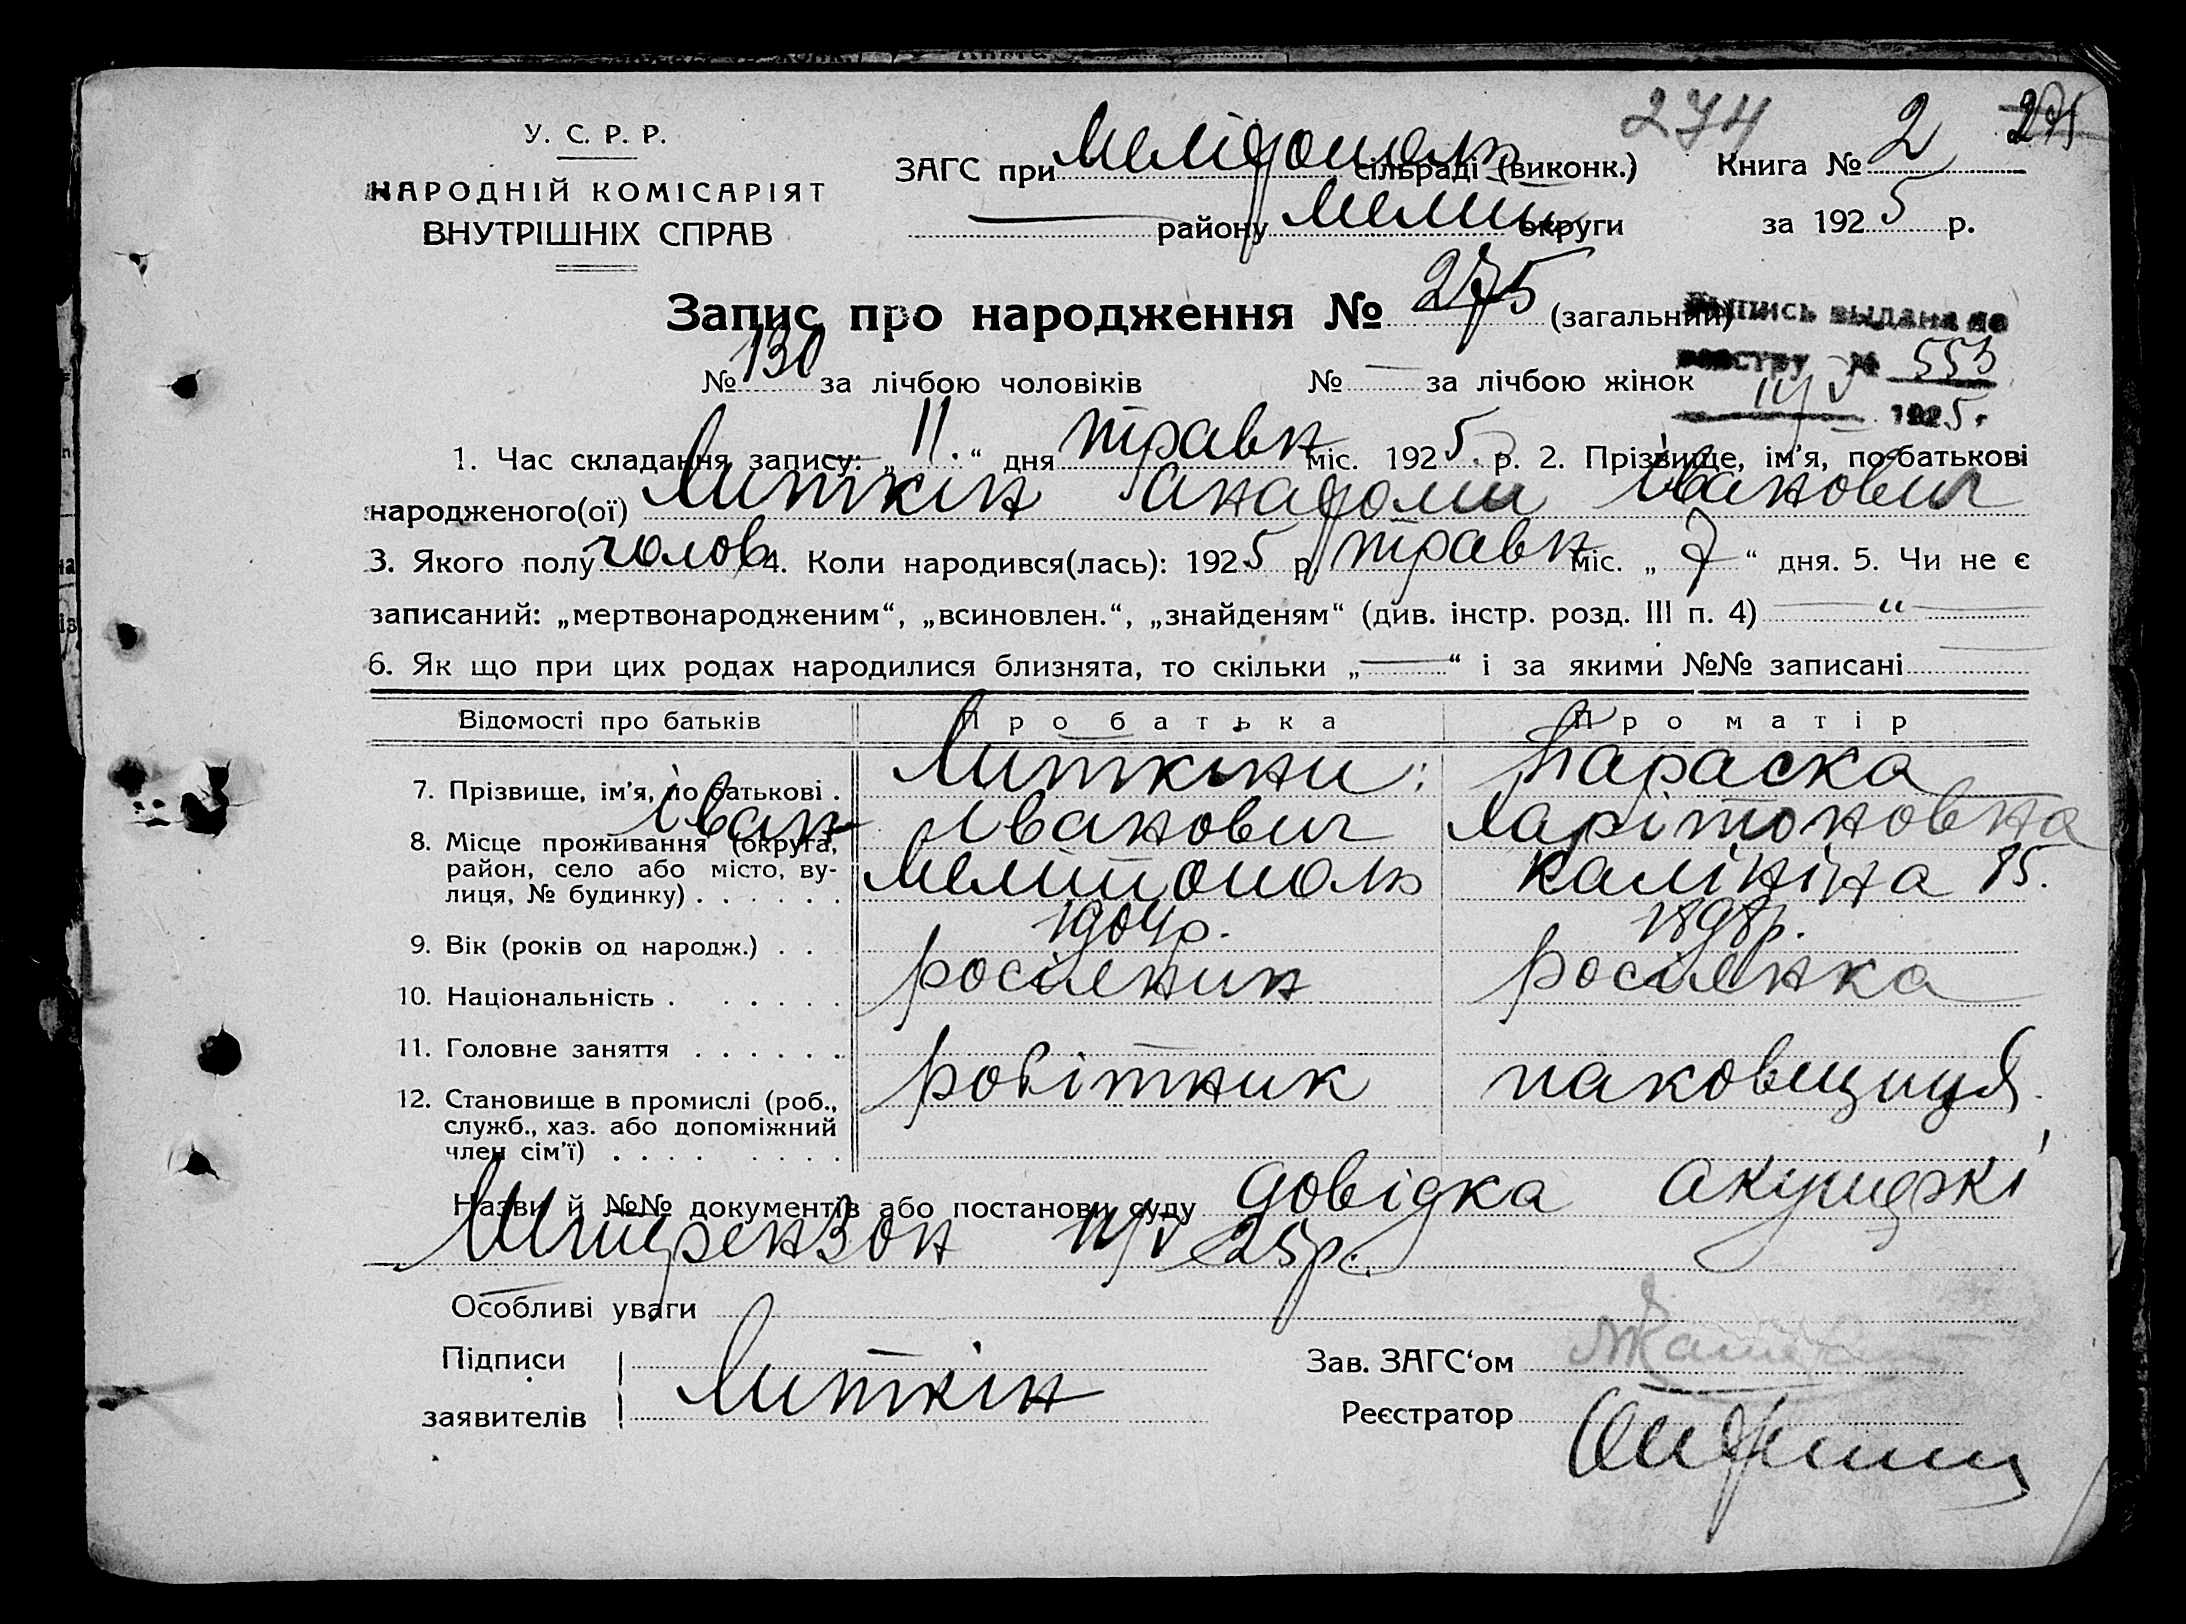 274
2 275
У. С. Р. Р.
НАРОДНІЙ КОМІСАРІЯТ
ВНУТРІШНІХ СПРАВ
ЗАГС при Мелітополь сільраді (виконк.) Книга № 2
— району Меліт округи за 1925 р.
Запис про народження № 275 (загальний)
Выпись выдана по
реестру № 553
11/V 1925 г.
№ 130 за лічбою чоловіків № — за лічбою жінок
1. Час складання запису: „11.“ дня травн міс. 1925 р. 2. Прізвище, ім'я, по-батькові
народженого(ої) Литкін Анатолий Іванович
3. Якого полу чолов 4. Коли народився(лась): 1925 р травн міс. „7“ дня. 5. Чи не є
записаний: „мертвонародженим“, „всиновлен.“, „знайденям“ (див. інстр. розд. III п. 4) — “ —
6. Як що при цих родах народилися близнята, то скільки „—“ і за якими №№ записані —
Відомості про батьків Про батька Про матір
7. Прізвище, ім'я, по батькові . Литкіни: Параска
Іван Іванович Харітоновна
8. Місце проживання (округа,
район, село або місто, ву-
лиця, № будинку) . . . . . . Мелітополь Калініна 85.
9. Вік (років од народж.) . . 1904р. 1898р.
10. Національність . . . . . . росіянин росіянка
11. Головне заняття . . . . . .
робітник паковщиця
12. Становище в промислі (роб.,
служб., хаз. або допоміжний
член сім'ї) . . . . . . . .
Назви й №№ документів або постанови суду довідка акушеркі
11/V 25р.
Особливі уваги
Підписи
заявителів Литкін
Зав. ЗАГС'ом
Реєстратор